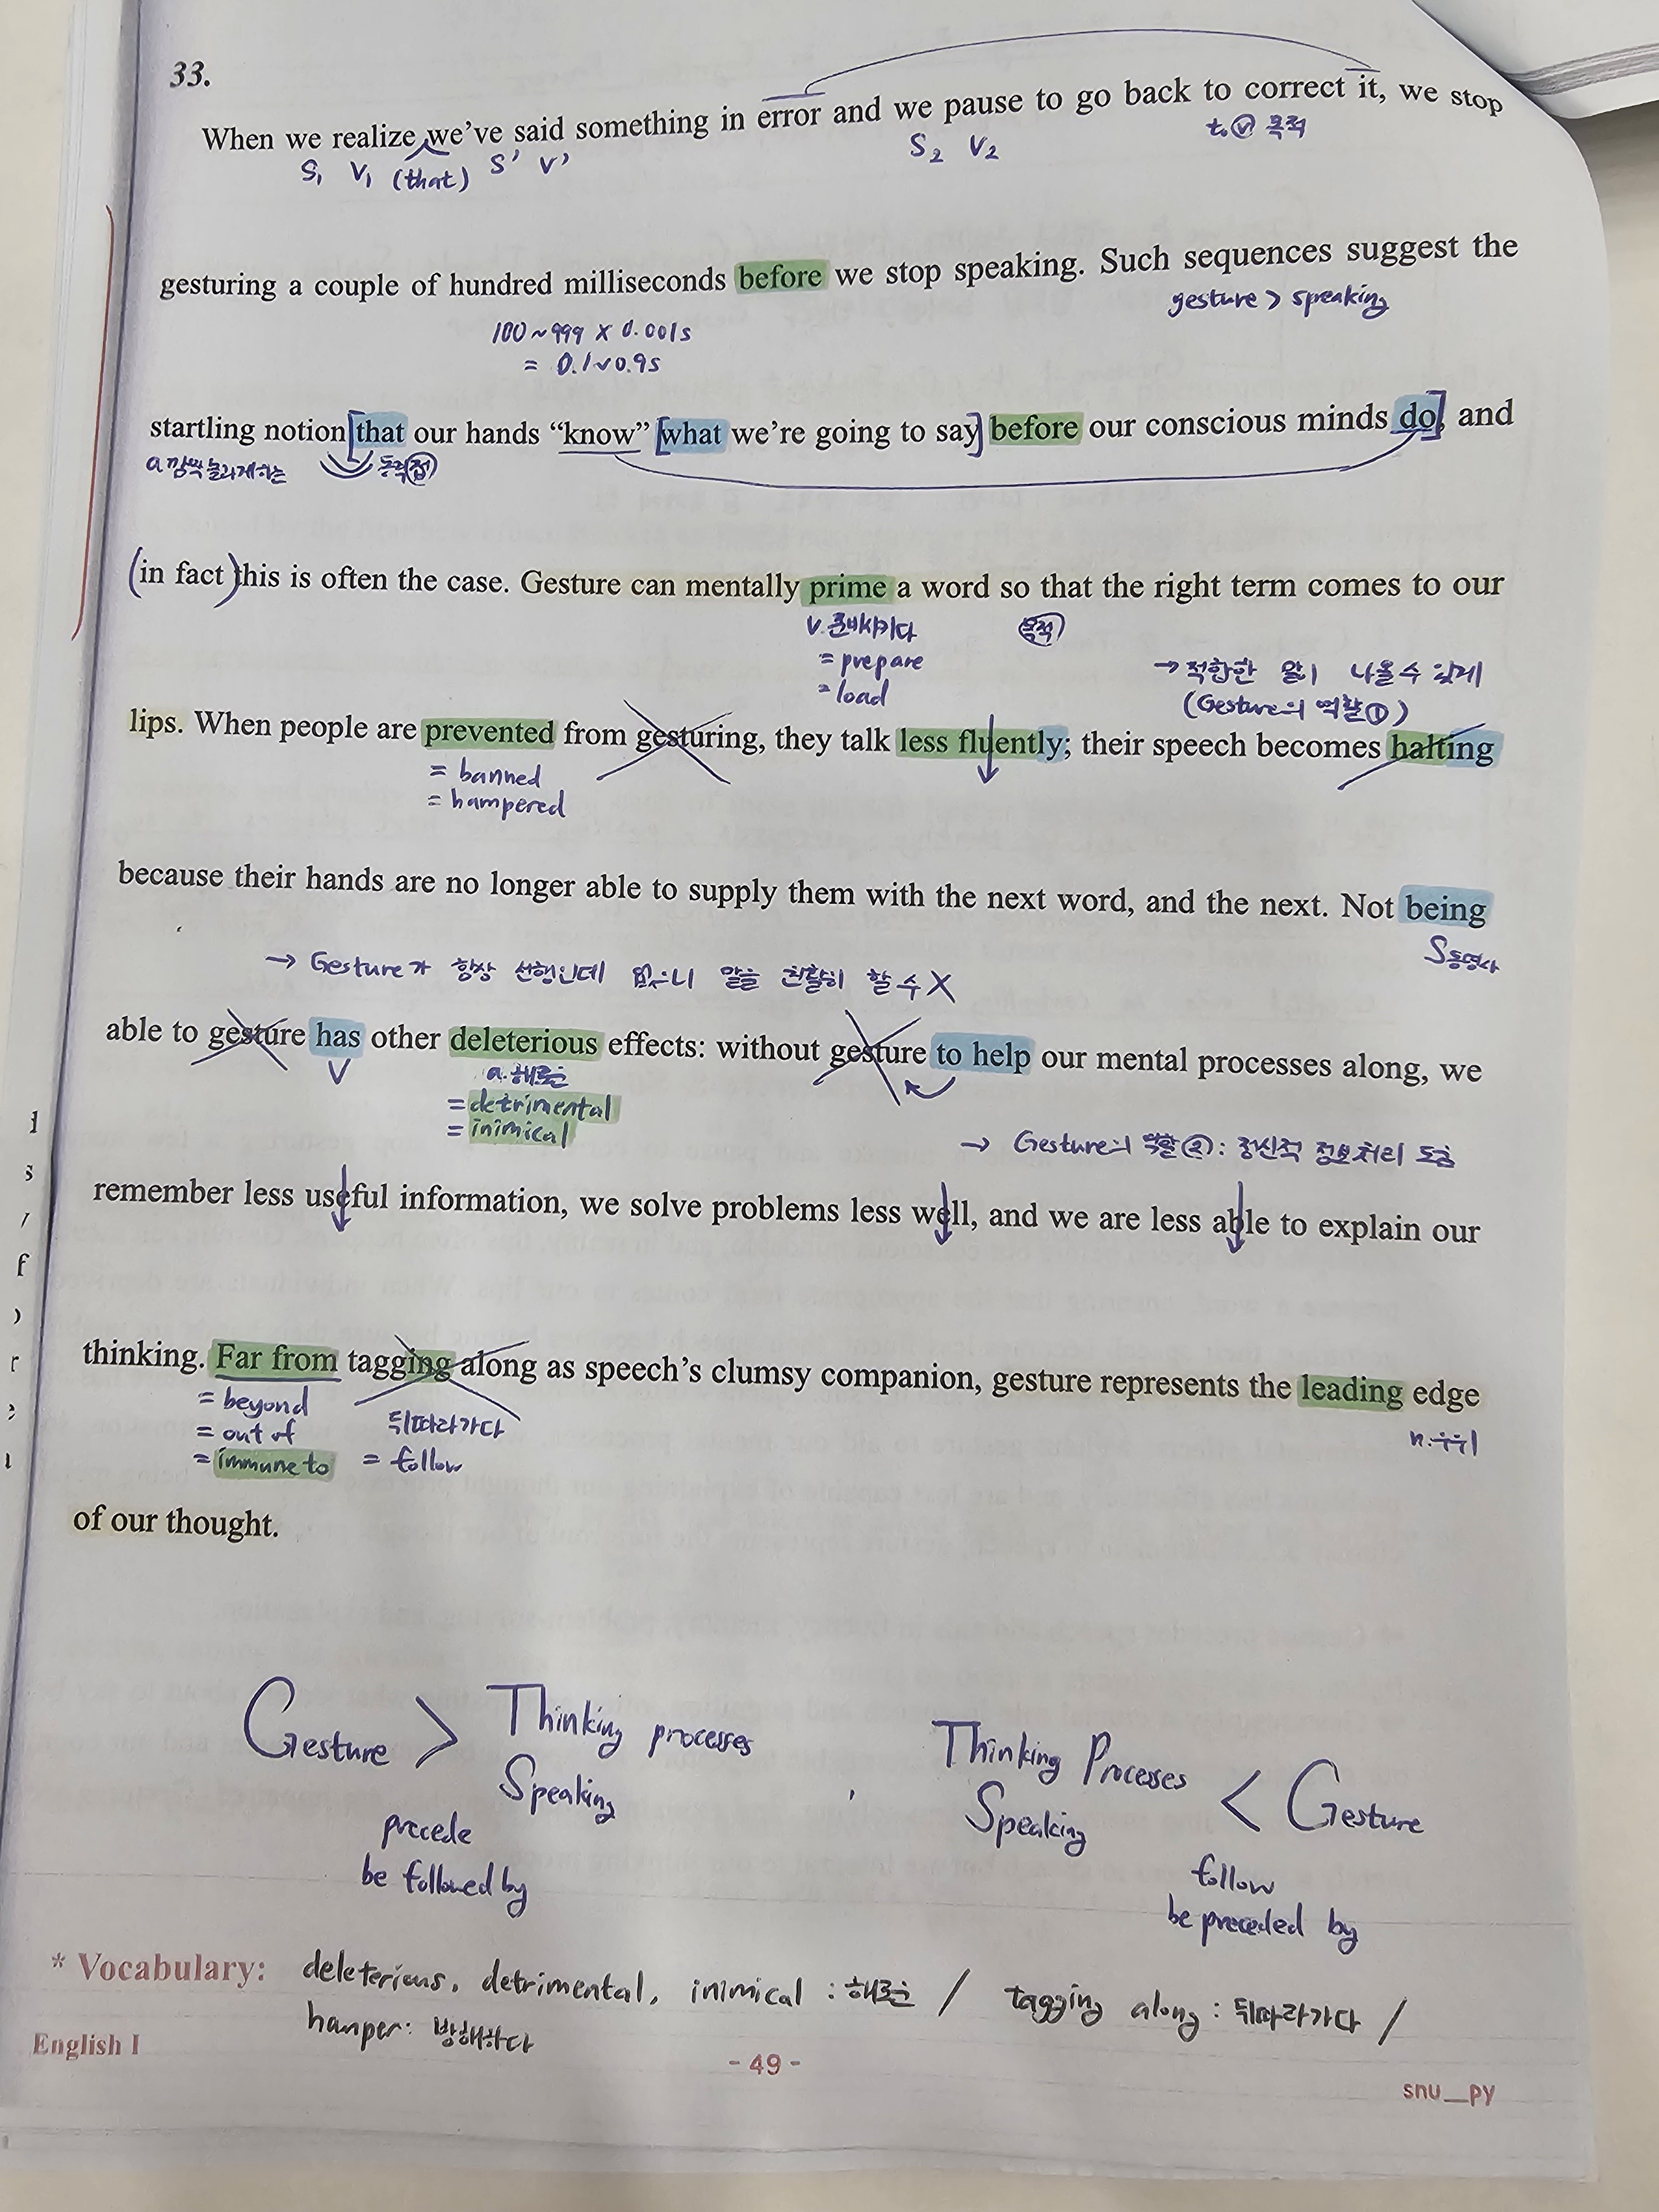 33.
When we realize we've said something in error and we pause to go back to correct it, we stop
S₁ V₁ (that) S' V' S₂ V₂ to ⓥ 목적
gesturing a couple of hundred milliseconds before we stop speaking. Such sequences suggest the
gesture > speaking
100~999 × 0.001s
= 0.1~0.9s
startling notion [that our hands "know" [what we're going to say] before our conscious minds do], and
a. 깜짝 놀라게하는 동격 접
(in fact) this is often the case. Gesture can mentally prime a word so that the right term comes to our
v. 준비시키다 목적
= prepare → 적합한 말이 나올 수 있게
= load (Gesture의 역할①)
lips. When people are prevented from gesturing, they talk less fluently; their speech becomes halting
= banned
= hampered
because their hands are no longer able to supply them with the next word, and the next. Not being
S 동명사
→ Gesture가 항상 선행인데 없으니 말을 원활히 할 수 X
able to gesture has other deleterious effects: without gesture to help our mental processes along, we
V a. 해로운
= detrimental
= inimical
→ Gesture의 역할②: 정신적 정보처리 도움
remember less useful information, we solve problems less well, and we are less able to explain our
thinking. Far from tagging along as speech's clumsy companion, gesture represents the leading edge
= beyond 뒤따라가다 n. 우위
= out of = follow
= immune to
of our thought.
Gesture > Thinking processes
Speaking
precede
be followed by
,
Thinking Processes < Gesture
Speaking
follow
be preceded by
* Vocabulary: deleterious, detrimental, inimical : 해로운 / tagging along : 뒤따라가다 /
hamper: 방해하다
English I
- 49 -
snu__py